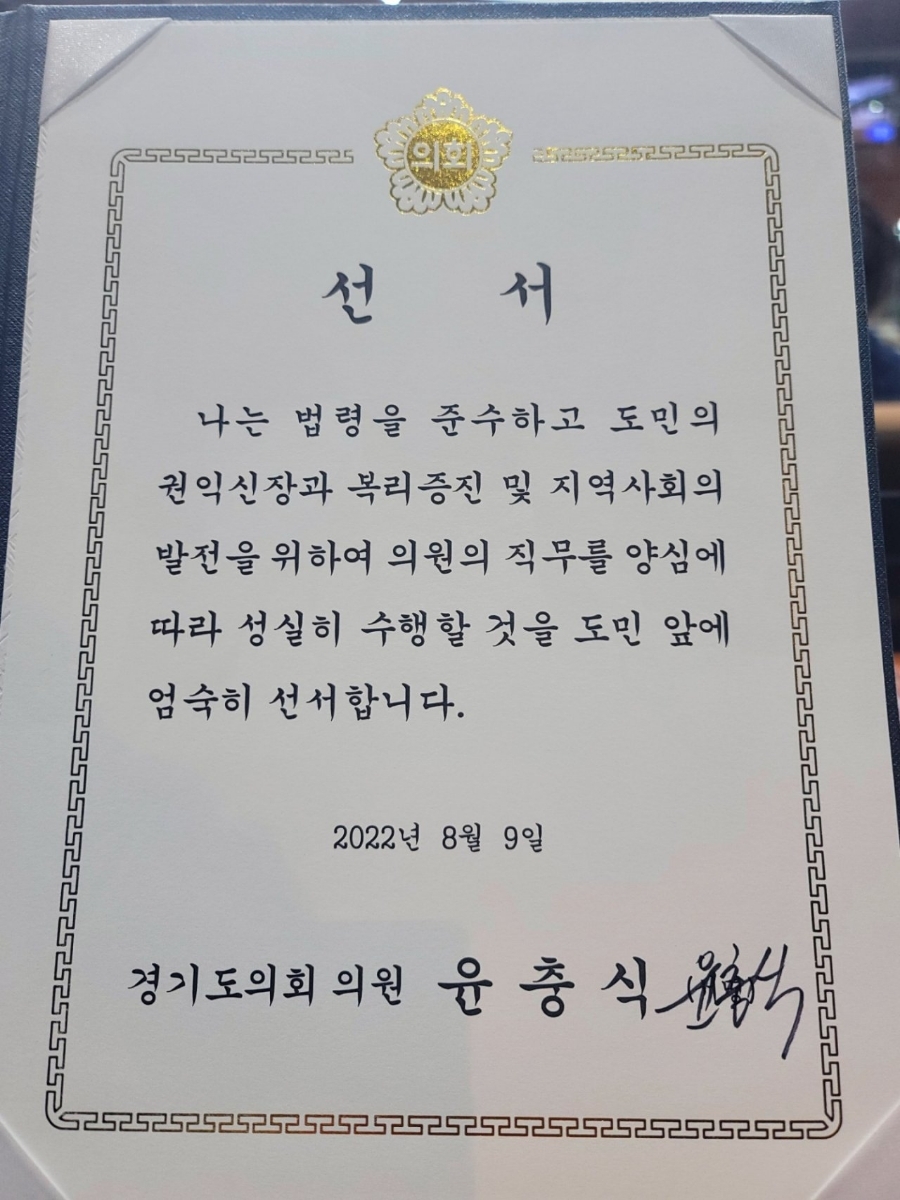 의회
선 서
나는 법령을 준수하고 도민의
권익신장과 복리증진 및 지역사회의
발전을 위하여 의원의 직무를 양심에
따라 성실히 수행할 것을 도민 앞에
엄숙히 선서합니다.
2022년 8월 9일
경기도의회 의원 윤 충 식 윤충식